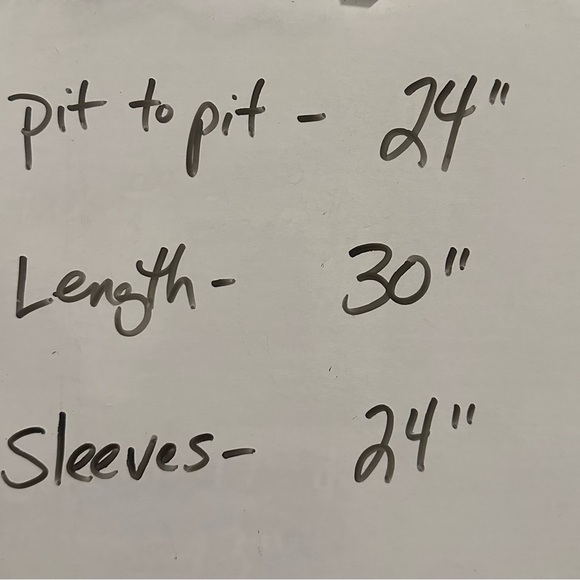 pit to pit - 24"
Length - 30"
Sleeves - 24"